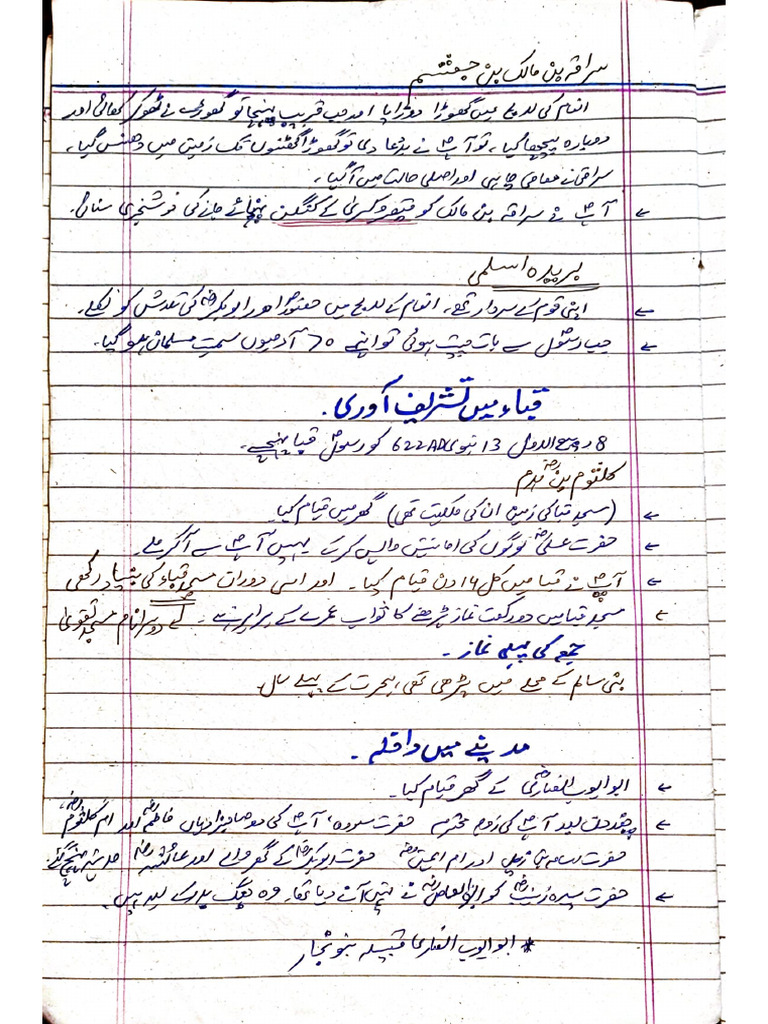 سراقہ بن مالک بن جعشم
انعام کی لالچ میں گھوڑا دوڑایا اور جب قریب پہنچا تو گھوڑی نے ٹھوکر کھائی اور
دوبارہ پیچھا کیا۔ تو آپؐ نے بددعا دی تو گھوڑا گھٹنوں تک زمین میں دھنس گیا۔
سراقہ نے معافی چاہی اور اصلی حالت میں آ گیا۔
آپؐ نے سراقہ بن مالک کو قیصر و کسریٰ کے کنگن پہنچائے جانے کی خوشخبری سنائی۔
بریدہ اسلمی
اپنی قوم کے سردار تھے۔ انعام کے لالچ میں حضورؐ اور ابوبکرؓ کی تلاش کو نکلے۔
جب رسولؐ سے بات چیت ہوئی تو اپنے 70 آدمیوں سمیت مسلمان ہو گیا۔
قباء میں تشریف آوری۔
8 ربیع الاول 13 نبوی 622AD کو رسولؐ قبا پہنچے۔
کلثوم بن ہدمؓ
(مسجد قبا کی زمین ان کی ملکیت تھی) گھر میں قیام کیا۔
حضرت علیؓ لوگوں کی امانتیں واپس کر کے یہیں آپؐ سے آ کر ملے۔
آپؐ نے قبا میں کل 14 دن قیام کیا۔ اور اسی دوران مسجد قباء کی بنیاد رکھی
مسجد قبا میں دو رکعت نماز پڑھنے کا ثواب عمرے کے برابر ہے۔ کے دوسرا نام مسجد تقویٰ
جمعے کی پہلی نماز۔
بنی سالم کے محلے میں پڑھی تھی، ہجرت کے پہلے سال
مدینے میں داخلہ۔
ابو ایوب انصاریؓ کے گھر قیام کیا۔
چند دن بعد آپؐ کی زوجہ محترمہ حضرت سودہ، آپؐ کی دو صاحبزادیاں فاطمہؓ اور ام کلثومؓ
حضرت اسامہ بن زید اور ام ایمنؓ حضرت ابوبکرؓ کے گھر والے اور عائشہؓ مدینہ پہنچ گئے
حضرت سیدہ زینبؓ کو ابوالعاصؓ نے نہیں آنے دیا تھا۔ وہ جنگ بدر کے بعد آئیں۔
* ابو ایوب انصاری قبیلہ بنو نجار